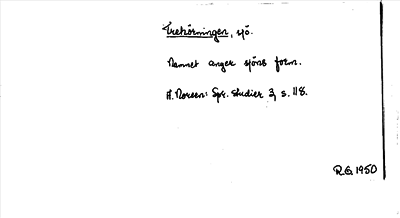 Trehörningen, sjö.
Namnet anger sjöns form.
A. Noreen: Spr. studier 3, s. 118.
R.G. 1950